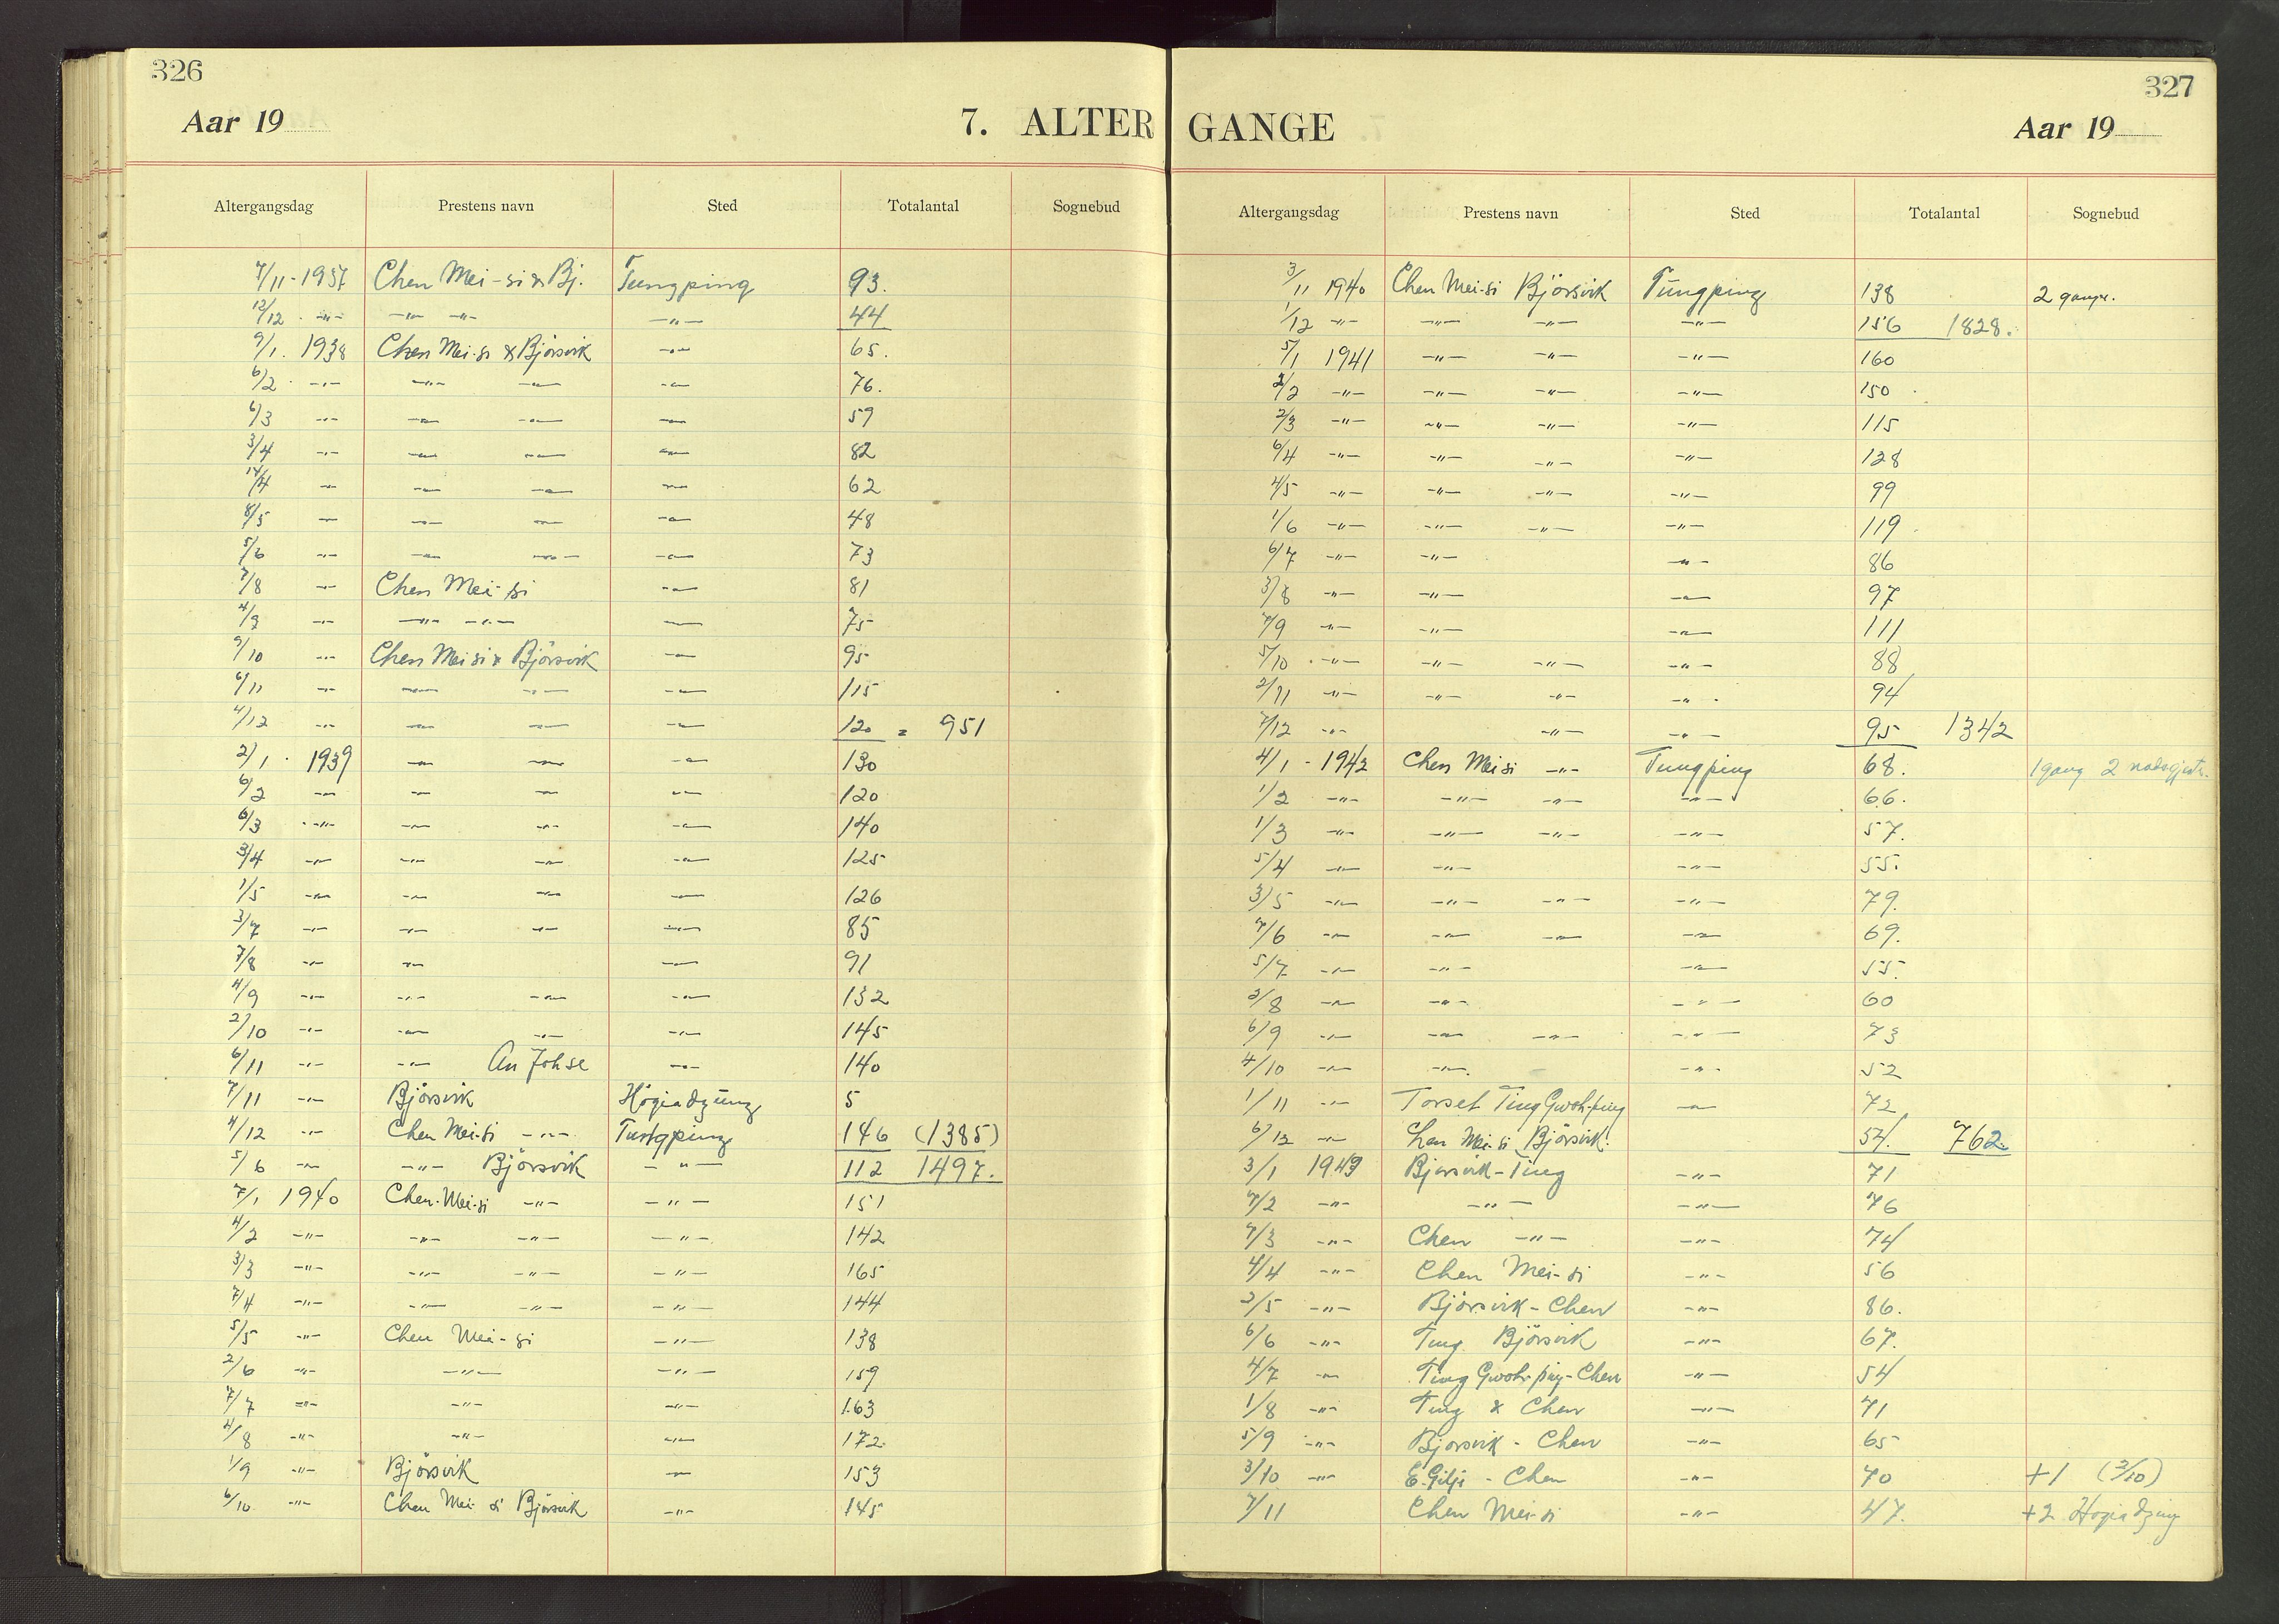 326
Aar 19
7. ALTER
Altergangsdag Prestens navn Sted Totalantal Sognebud
7/11 - 1937 Chen Mei-si & Bj. Tungping 93.
12/12 · -"- -"- -"- -"- 44
9/1. 1938 Chen Mei-si & Björsvik -"- 65.
6/2 · -"- -"- -"- -"- 76.
6/3 -"- -"- -"- -"- 59
3/4 -"- -"- -"- -"- 82
14/4 -"- -"- -"- -"- 62
8/5 -"- -"- -"- -"- 48
5/6 -"- -"- -"- -"- 73
7/8 -"- Chen Mei-si -"- 81
4/9 -"- -"- -"- -"- 75
9/10 -"- Chen Mei si & Björsvik -"- 95
6/11 -"- -"- -"- -"- 115
4/12 -"- -"- -"- -"- 120 = 951
2/1 · 1939 -"- -"- -"- 130
6/2 -"- -"- -"- -"- 120
6/3 -"- -"- -"- -"- 140
3/4 -"- -"- -"- -"- 125
1/5 -"- -"- -"- -"- 126
3/7 -"- -"- -"- -"- 85
7/8 -"- -"- -"- 91
4/9 -"- -"- -"- -"- 132
2/10 -"- -"- -"- -"- 145
6/11 -"- -"- An Johse -"- 140
7/11 -"- Björsvik Högiadzung 5
4/12 -"- Chen Mei-si -"- Tungping 146 (1385)
5/6 -"- -"- Björsvik -"- 112 1497.
7/1 1940 Chen-Mei-si -"- -"- 151
4/2 -"- -"- -"- -"- 142
3/3 -"- -"- -"- -"- 165
7/4 -"- -"- -"- -"- 144
5/5 -"- Chen Mei-si -"- 138
2/6 -"- -"- -"- 159
7/7 -"- -"- -"- 163
4/8 -"- -"- -"- 172
1/9 -"- Björsvik -"- 153
6/10 -"- Chen Mei si Björsvik -"- 145
327
GANGE
Aar 19
Altergangsdag Prestens navn Sted Totalantal Sognebud
3/11 1940 Chen Mei-si Björsvik Tungping 138 2 ganger.
1/12 -"- -"- -"- -"- 156 1828.
5/1 1941 -"- -"- -"- 160
2/2 -"- -"- -"- -"- 150
2/3 -"- -"- -"- -"- 115
6/4 -"- -"- -"- -"- 128
4/5 -"- -"- -"- -"- 99
1/6 -"- -"- -"- -"- 119
6/7 -"- -"- -"- 86
3/8 -"- -"- -"- 97
7/9 -"- -"- -"- 111
5/10 -"- -"- -"- -"- 88
2/11 -"- -"- -"- -"- 94
7/12 -"- -"- -"- 95 1342
4/1 - 1942 Chen Mei si -"- Tungping 68. 1 gang 2
1/2 -"- -"- -"- -"- 66.
1/3 -"- -"- -"- -"- 57.
5/4 -"- -"- -"- 55.
3/5 -"- -"- -"- -"- 79.
7/6 -"- -"- -"- -"- 69.
5/7 -"- -"- -"- 55.
2/8 -"- -"- -"- 60
6/9 -"- -"- -"- -"- 73
4/10 -"- -"- -"- 52
1/11 -"- Torset Ting Gwoh-ping -"- 72
6/12 -"- Chen Mei-si Björsvik. -"- 57. 762.
3/1 1943 Bjørsvik-Ting -"- 71
7/2 -"- -"- -"- 76
7/3 -"- Chen -"- -"- 74
4/4 -"- Chen Mei-si -"- 56
2/5 -"- Björsvik - Chen -"- 86.
6/6 -"- Ting Björsvik -"- 67.
4/7 -"- Ting Gwoh ping - Chen -"- 54
1/8 -"- Ting & Chen -"- 71
5/9 -"- Bjorsvik - Chen -"- 65
3/10 -"- E. Gilje - Chen -"- 70 +1 (3/10)
7/11 Chen Mei-si -"- 47. +2 Hogiadzung